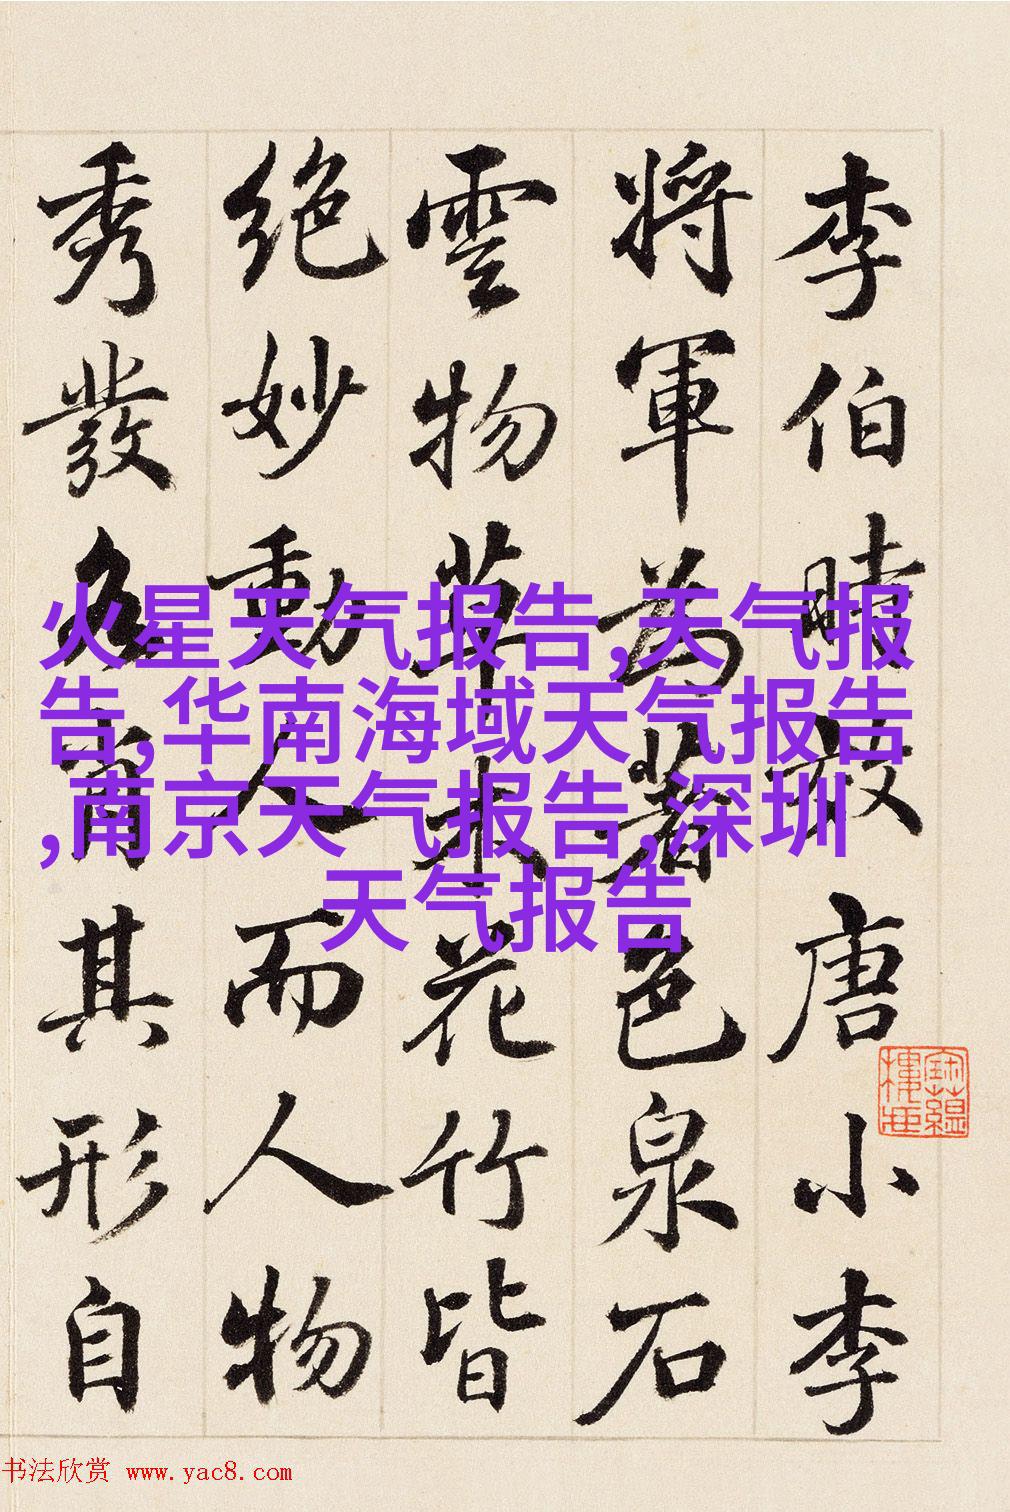 李伯時效唐小李
將軍為著色泉石
雲物草木花竹皆
絕妙動人而人物
秀發各肖其形自
火星天气报告,天气报
告,华南海域天气报告
,南京天气报告,深圳
天气报告
书法欣赏 www.yac8.com